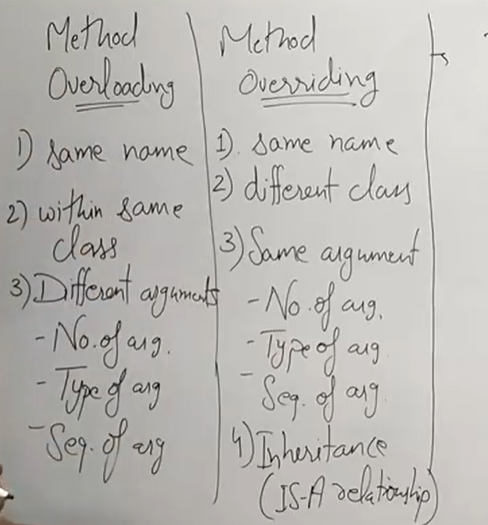 Method
Overloading
1) same name
2) within same
class
3) Different arguments
- No. of arg.
- Type of arg
- Seq. of arg
Method
Overriding
1). same name
2) different class
3) Same argument
- No. of arg.
- Type of arg
- Seq. of arg.
4) Inheritance
(IS-A relationship)